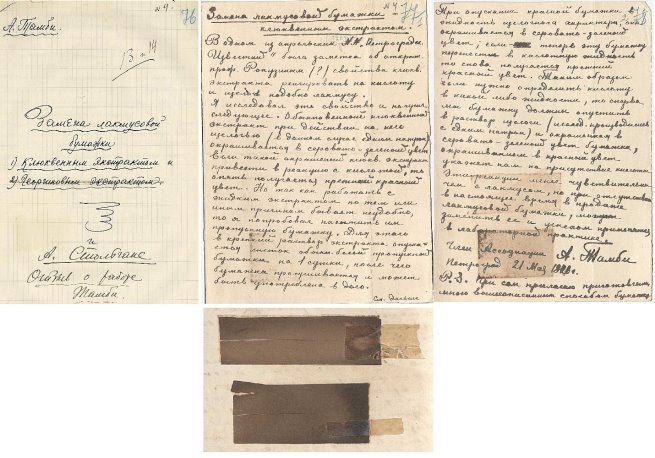 N 4.
76
А. Тамби.
13 - 14
Замена лакмусовой
бумажки
1) Клюквенным экстрактом и
2) Георгиновым экстрактом.
и
А. Стольгане
Отзыв о работе
Тамби.
N 4
77
Замена лакмусовой бумажки
клюквенным экстрактом.
В одном из апрельских NN Петроградск.
Известий была заметка об открытии
проф. Ракузиным (?) свойства клюкв.
экстракта реагировать на кислоту
и щелочь подобно лакмусу.
Я исследовал это свойство и получил
следующее. Обыкновенный клюквенный
экстракт при действии на него
щелочью (в данном случае едким натром)
окрашивается в серовато-зеленый цвет.
Если такой окрашенный клюкв. экстракт
привести в реакцию с кислотой, то
опять получается прежний красный
цвет. Но так как работать с
жидким экстрактом по тем или
иным причинам бывает неудобно,
то я попробовал насытить им
пропускную бумажку. Для этого
в крепкий раствор экстракта опускается
листок обыкн. белой пропускной
бумажки на 1 сутки, после чего
бумажка просушивается и может
быть употреблена в дело.
См. дальше
78
При опускании красной бумажки в
жидкость щелочного характера, она
окрашивается в серовато-зеленый
цвет, если теперь эту бумажку
перенести в кислотную жидкость
то снова получается прежний
красный цвет. Таким образом
если нужно определить кислоту
в какой либо жидкости, то сперва
мы бумажку должны опустить
в раствор щелочи (исслед. производились
с едким натром) и окрашенная в
серовато-зеленый цвет бумажка,
окрашиванием в красный цвет
укажет нам на присутствие кислоты.
Эта реакция менее чувствительна
чем с лакмусом, но при отсутствии
в настоящее время в продаже
лакмусовой бумажки, может
заменить её и с успехом применяться
в лабораторной практике.
Член Ассоциации А. Тамби
Петроград 21 Мая 1920 г.
P.S. При сем прилагаю приготовленную
мною вышеописанным способом бумажку.